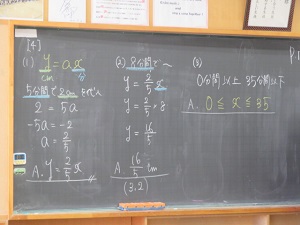 [4]
(1) y = ax
cm 分
5分間で2cm
2 = 5a
-5a = -2
a = 2/5
A. y = 2/5 x
(2) 8分間で
y = 2/5 x
y = 2/5 × 8
y = 16/5
A. 16/5 cm
(3.2)
(3)
0分間以上 35分間以下
A. 0 ≦ x ≦ 35